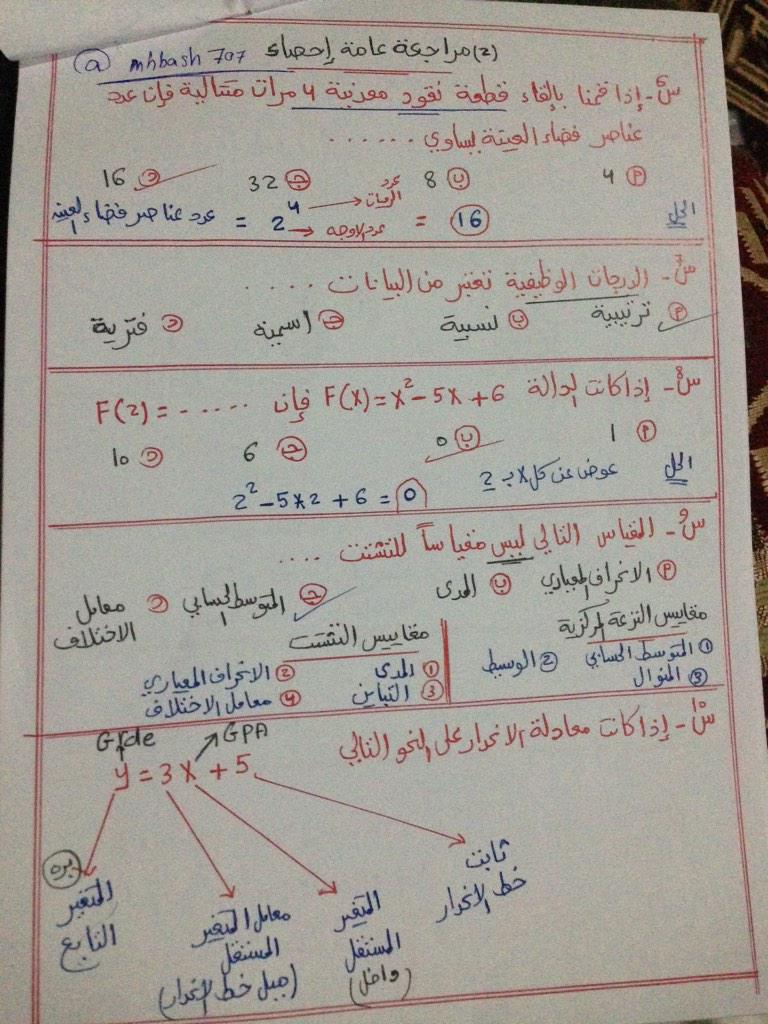 (2) مراجعة عامة إحصاء @ mhbash 707
س6- إذا قمنا بإلقاء قطعة نقود معدنية 4 مرات متتالية فإن عدد
عناصر فضاء العينة يساوي ......
أ 4 ب 8 ج 32 د 16
الحل عدد عناصر فضاء العينة = 2^4 = 16
عدد المرات
عدد الاوجه
س7- الدرجات الوظيفية تعتبر من البيانات .....
أ ترتيبية ب نسبية ج اسمية د فترية
س8- إذا كانت الدالة F(x) = x² - 5x + 6 فإن F(2) = ......
أ 1 ب 0 ج 6 د 10
الحل عوض عن كل x بـ 2
2² - 5x2 + 6 = 0
س9- المقياس التالي ليس مقياساً للتشتت ....
أ الانحراف المعياري ب المدى ج المتوسط الحسابي د معامل الاختلاف
مقاييس النزعة المركزية
① المتوسط الحسابي ② الوسيط
③ المنوال
مقاييس التشتت
① المدى ② الانحراف المعياري
③ التباين ④ معامل الاختلاف
س10- إذا كانت معادلة الانحدار على النحو التالي
Grde GPA
y = 3x + 5
ثابت
خط الانحدار
المتغير
المستقل
(داخل)
معامل المتغير
المستقل
(ميل خط الانحدار)
بره
المتغير
التابع